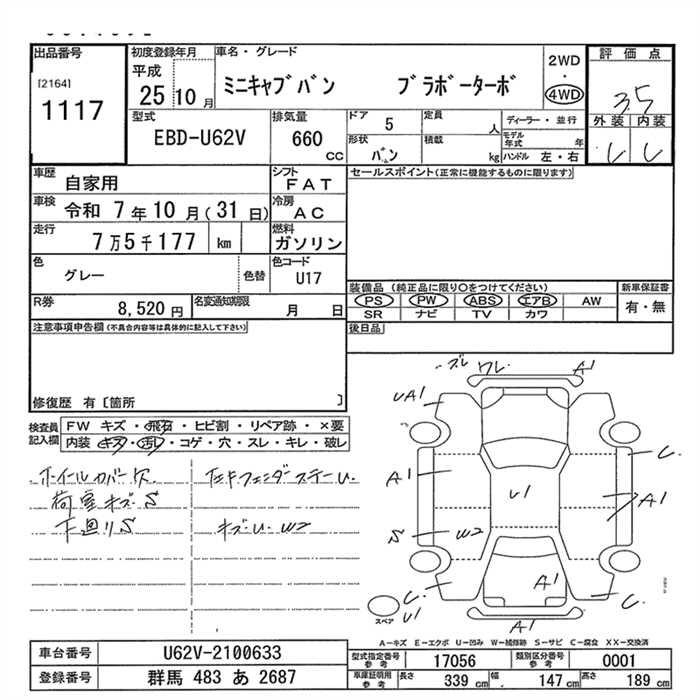 出品番号
[2164]
1117
初度登録年月
平成
25 10 月
車名・グレード
ミニキャブバン ブラボーターボ
2WD
・
4WD
評価点
3.5
外装 内装
型式
EBD-U62V
排気量
660
CC
ドア 5
形状 バン
定員 人
積載 kg
ディーラー・並行
モデル年式 年
ハンドル 左・右
車歴 自家用
シフト FAT
車検 令和 7年10月(31日)
冷房 AC
走行 7万5千177 km
燃料 ガソリン
色 グレー 色替
色コード U17
R券 8,520 円
名変通知期限 月 日
セールスポイント(正常に機能するものに限ります)
装備品 (純正品に限り○をつけてください)
新車保証書
PS PW ABS エアB AW
有・無
SR ナビ TV カワ
後日品
注意事項申告欄(不具合内容等は具体的に記入して下さい)
修復歴 有〔箇所 〕
検査員記入欄
FW キズ・飛石・ヒビ割・リペア跡・×要
内装 キズ・汚れ・コゲ・穴・スレ・キレ・破レ
ホイールカバー欠
荷室キズS
下廻りS
キズU W2
ズレ ワレ A1
UA1
C.
A1
U1
A1
S W2
A1
C.
C.
スペア
U1
A1
A-キズ E-エクボ U-凹み W-補修跡 S-サビ C-腐食 XX-交換済
車台番号 U62V-2100633
登録番号 群馬 483 あ 2687
型式指定番号 参考 17056
類別区分番号 参考 0001
車庫証明用 参考 長さ 339 cm 幅 147 cm 高さ 189 cm